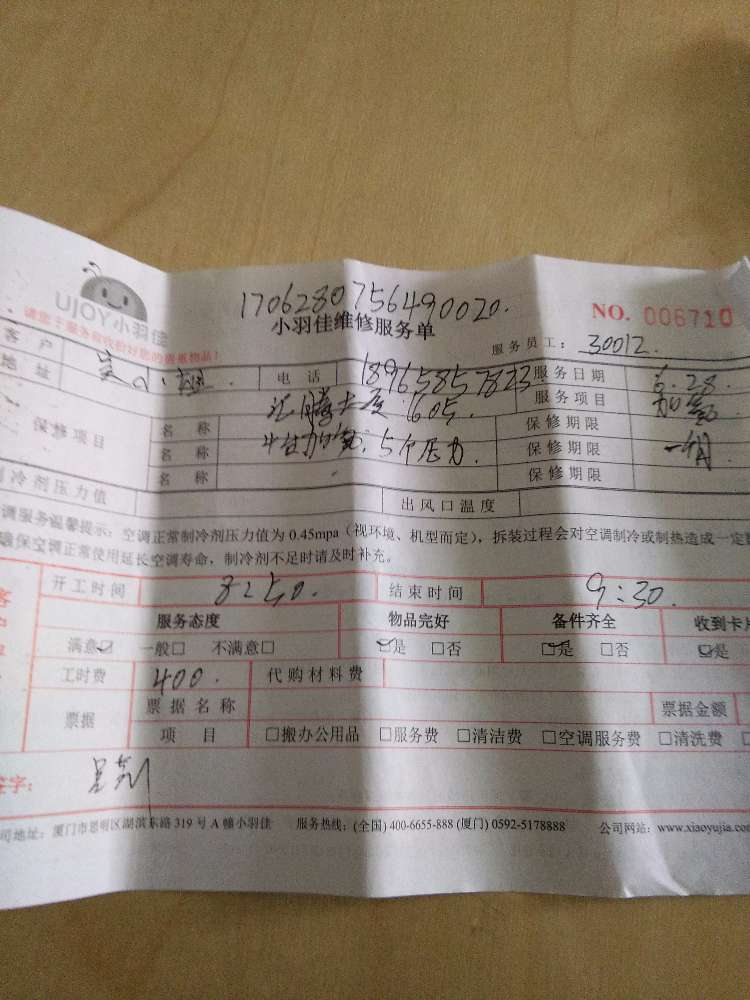 UJOY小羽佳
1706280756490020.
请您于服务前收拾好您的贵重物品!
小羽佳维修服务单
NO. 006710
服务员工: 30012.
客户
电话 18965857823
服务日期 6.28
地址
汇腾大厦 605.
服务项目 加氟
保修项目
名称
保修期限
名称 5个压力.
保修期限 一个月
名称
保修期限
制冷剂压力值
出风口温度
调服务温馨提示: 空调正常制冷剂压力值为 0.45mpa (视环境、机型而定), 拆装过程会对空调制冷或制热造成一定
确保空调正常使用延长空调寿命, 制冷剂不足时请及时补充。
开工时间 8:50.
结束时间 9:30.
服务态度 物品完好 备件齐全 收到卡片
满意☑ 一般□ 不满意□ ☑是 □否 ☑是 □否 ☑是
工时费 400. 代购材料费
票据 票据名称 票据金额
项目 □搬办公用品 □服务费 □清洁费 □空调服务费 □清洗费
签字:
公司地址: 厦门市思明区湖滨东路 319 号 A 幢小羽佳 服务热线: (全国) 400-6655-888 (厦门) 0592-5178888 公司网站: www.xiaoyujia.com